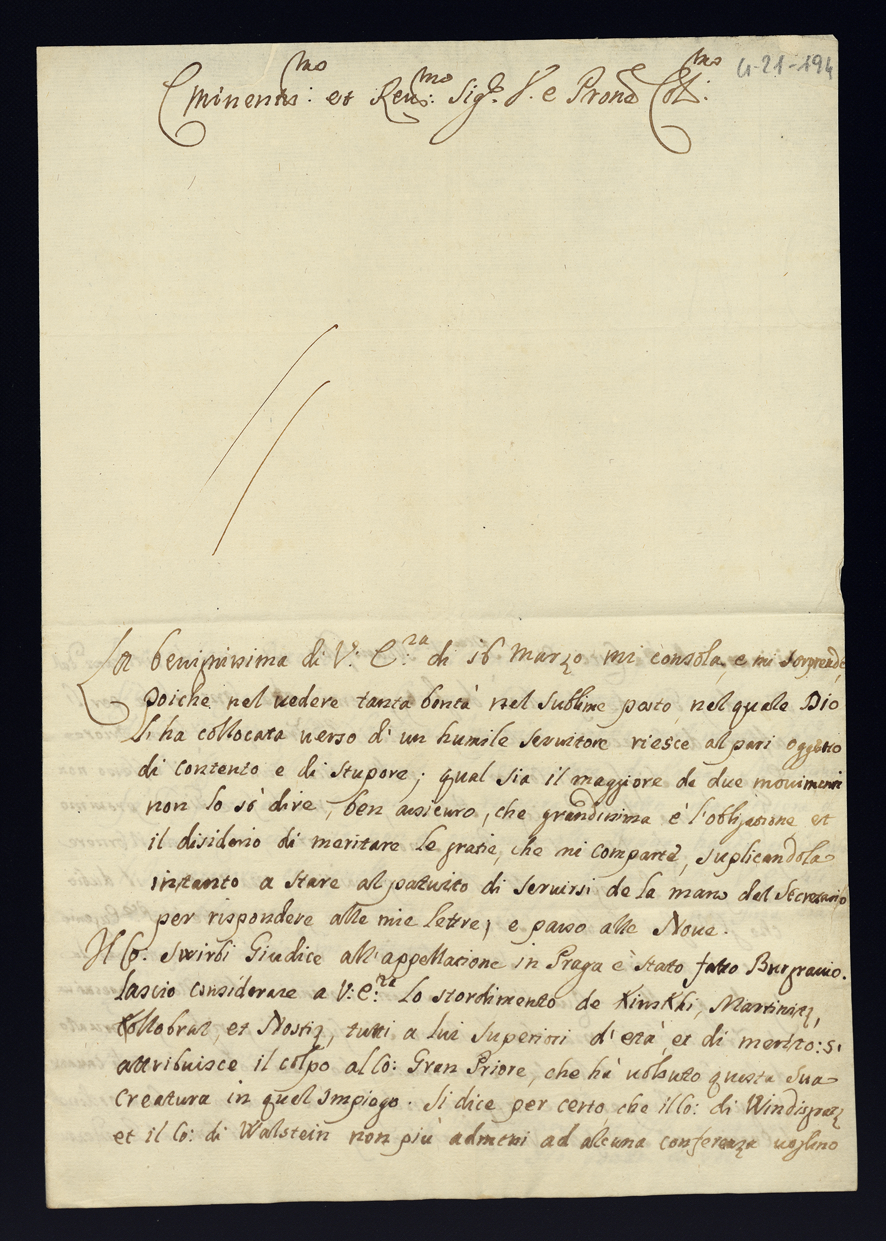 G-21-194
Eminentis:mo et Reu:mo Sig.r P. e Prone Col:mo
La benignissima di V: E:za di 16 Marzo mi consola, e mi sorprende,
poiche nel uedere tanta bontà nel sublime posto, nel quale Dio
l'ha collocata uerso d'un humile seruitore riesce al pari oggetto
di contento e di stupore; qual sia il maggiore de due mouimenti
non lo sò dire, ben assicuro, che grandissima è l'obligazione et
il disiderio di meritare le gratie, che mi comparte, suplicandola
instanto a stare al patuito di seruirsi de la mano del Secretario
per rispondere alle mie lettre; e passo alle Noue.
Il Co: Swirbi Giudice all'appellatione in Praga è stato fatto Burgrauio.
lascio considerare a V: E:za Lo stordimento de Kinskhi, Martinitz,
Collobrat, et Nostiz, tutti a lui superiori d'età et di merito: si
attribuisce il colpo al Co: Gran Priore, che hà uolsuto questa sua
Creatura in quel Impiego. Si dice per certo che il Co: di Windisgratz
et il Co: di Walstein non più admessi ad alcuna conferenza uoglino